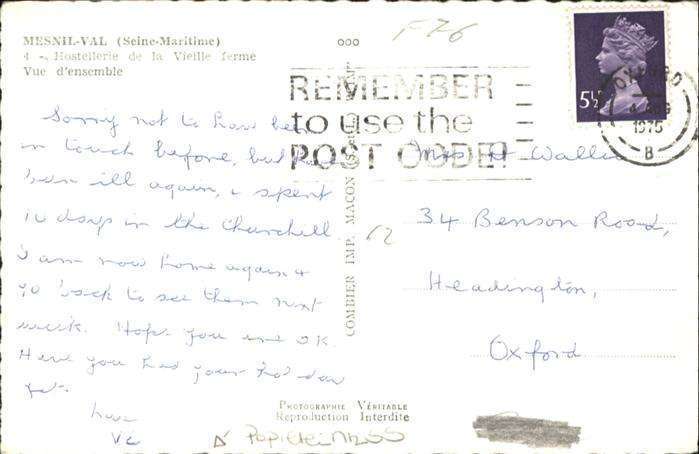 MESNIL-VAL (Seine-Maritime)
4 -. Hostellerie de la Vieille ferme
Vue d'ensemble
F76
REMEMBER
to use the
POST CODE!
5½P
OXFORD
AUG
1975
B
Sorry not to have been
in touch before, but have
been ill again, & spent
10 days in the Churchill.
I am now home again &
go back to see them next
week. Hope you are OK
Have you had your holiday
yet.
love
COMBIER IMP. MACON
62
Mrs H Wallis
34 Benson Road,
Headington,
Oxford
PHOTOGRAPHIE VÉRITABLE
Reproduction Interdite